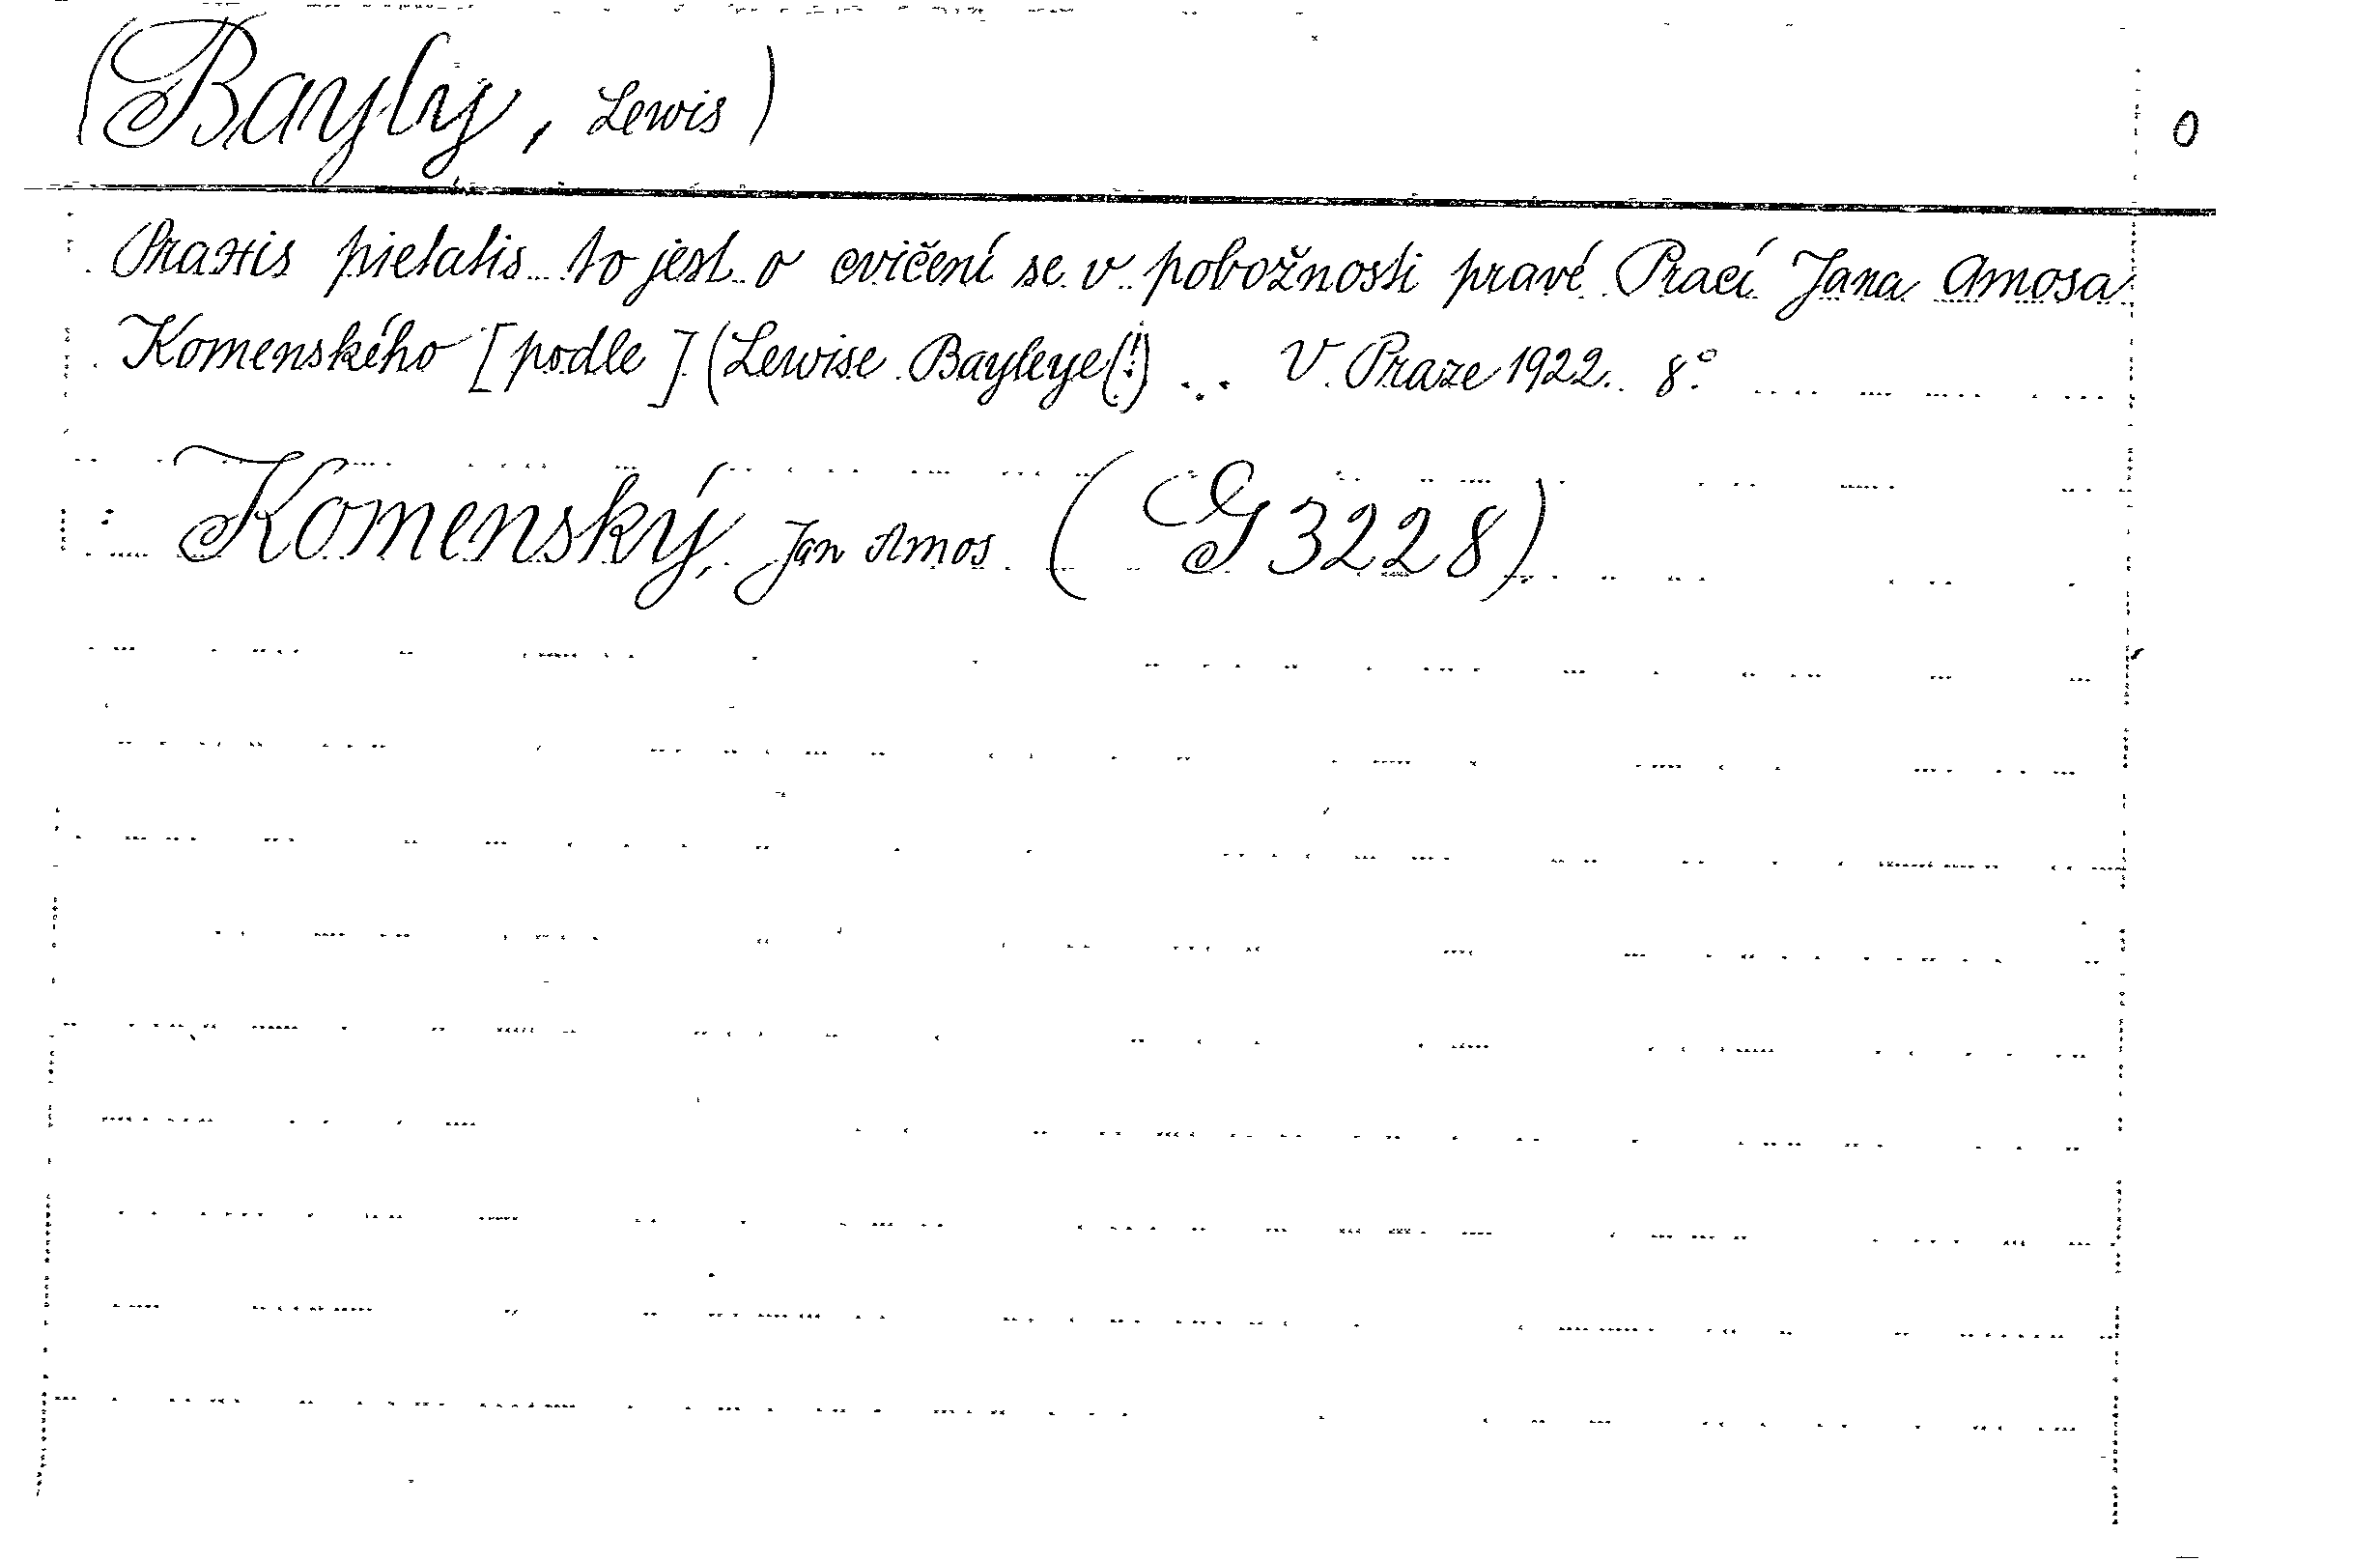 (Bayly, Lewis) 0
Praxis pietatis to jest o cvičení se v pobožnosti pravé Prací Jana Amosa
Komenského [podle] (Lewise Bayleye(!) ... V Praze 1922. 8°
: Komenský, Jan Amos (G 3228)